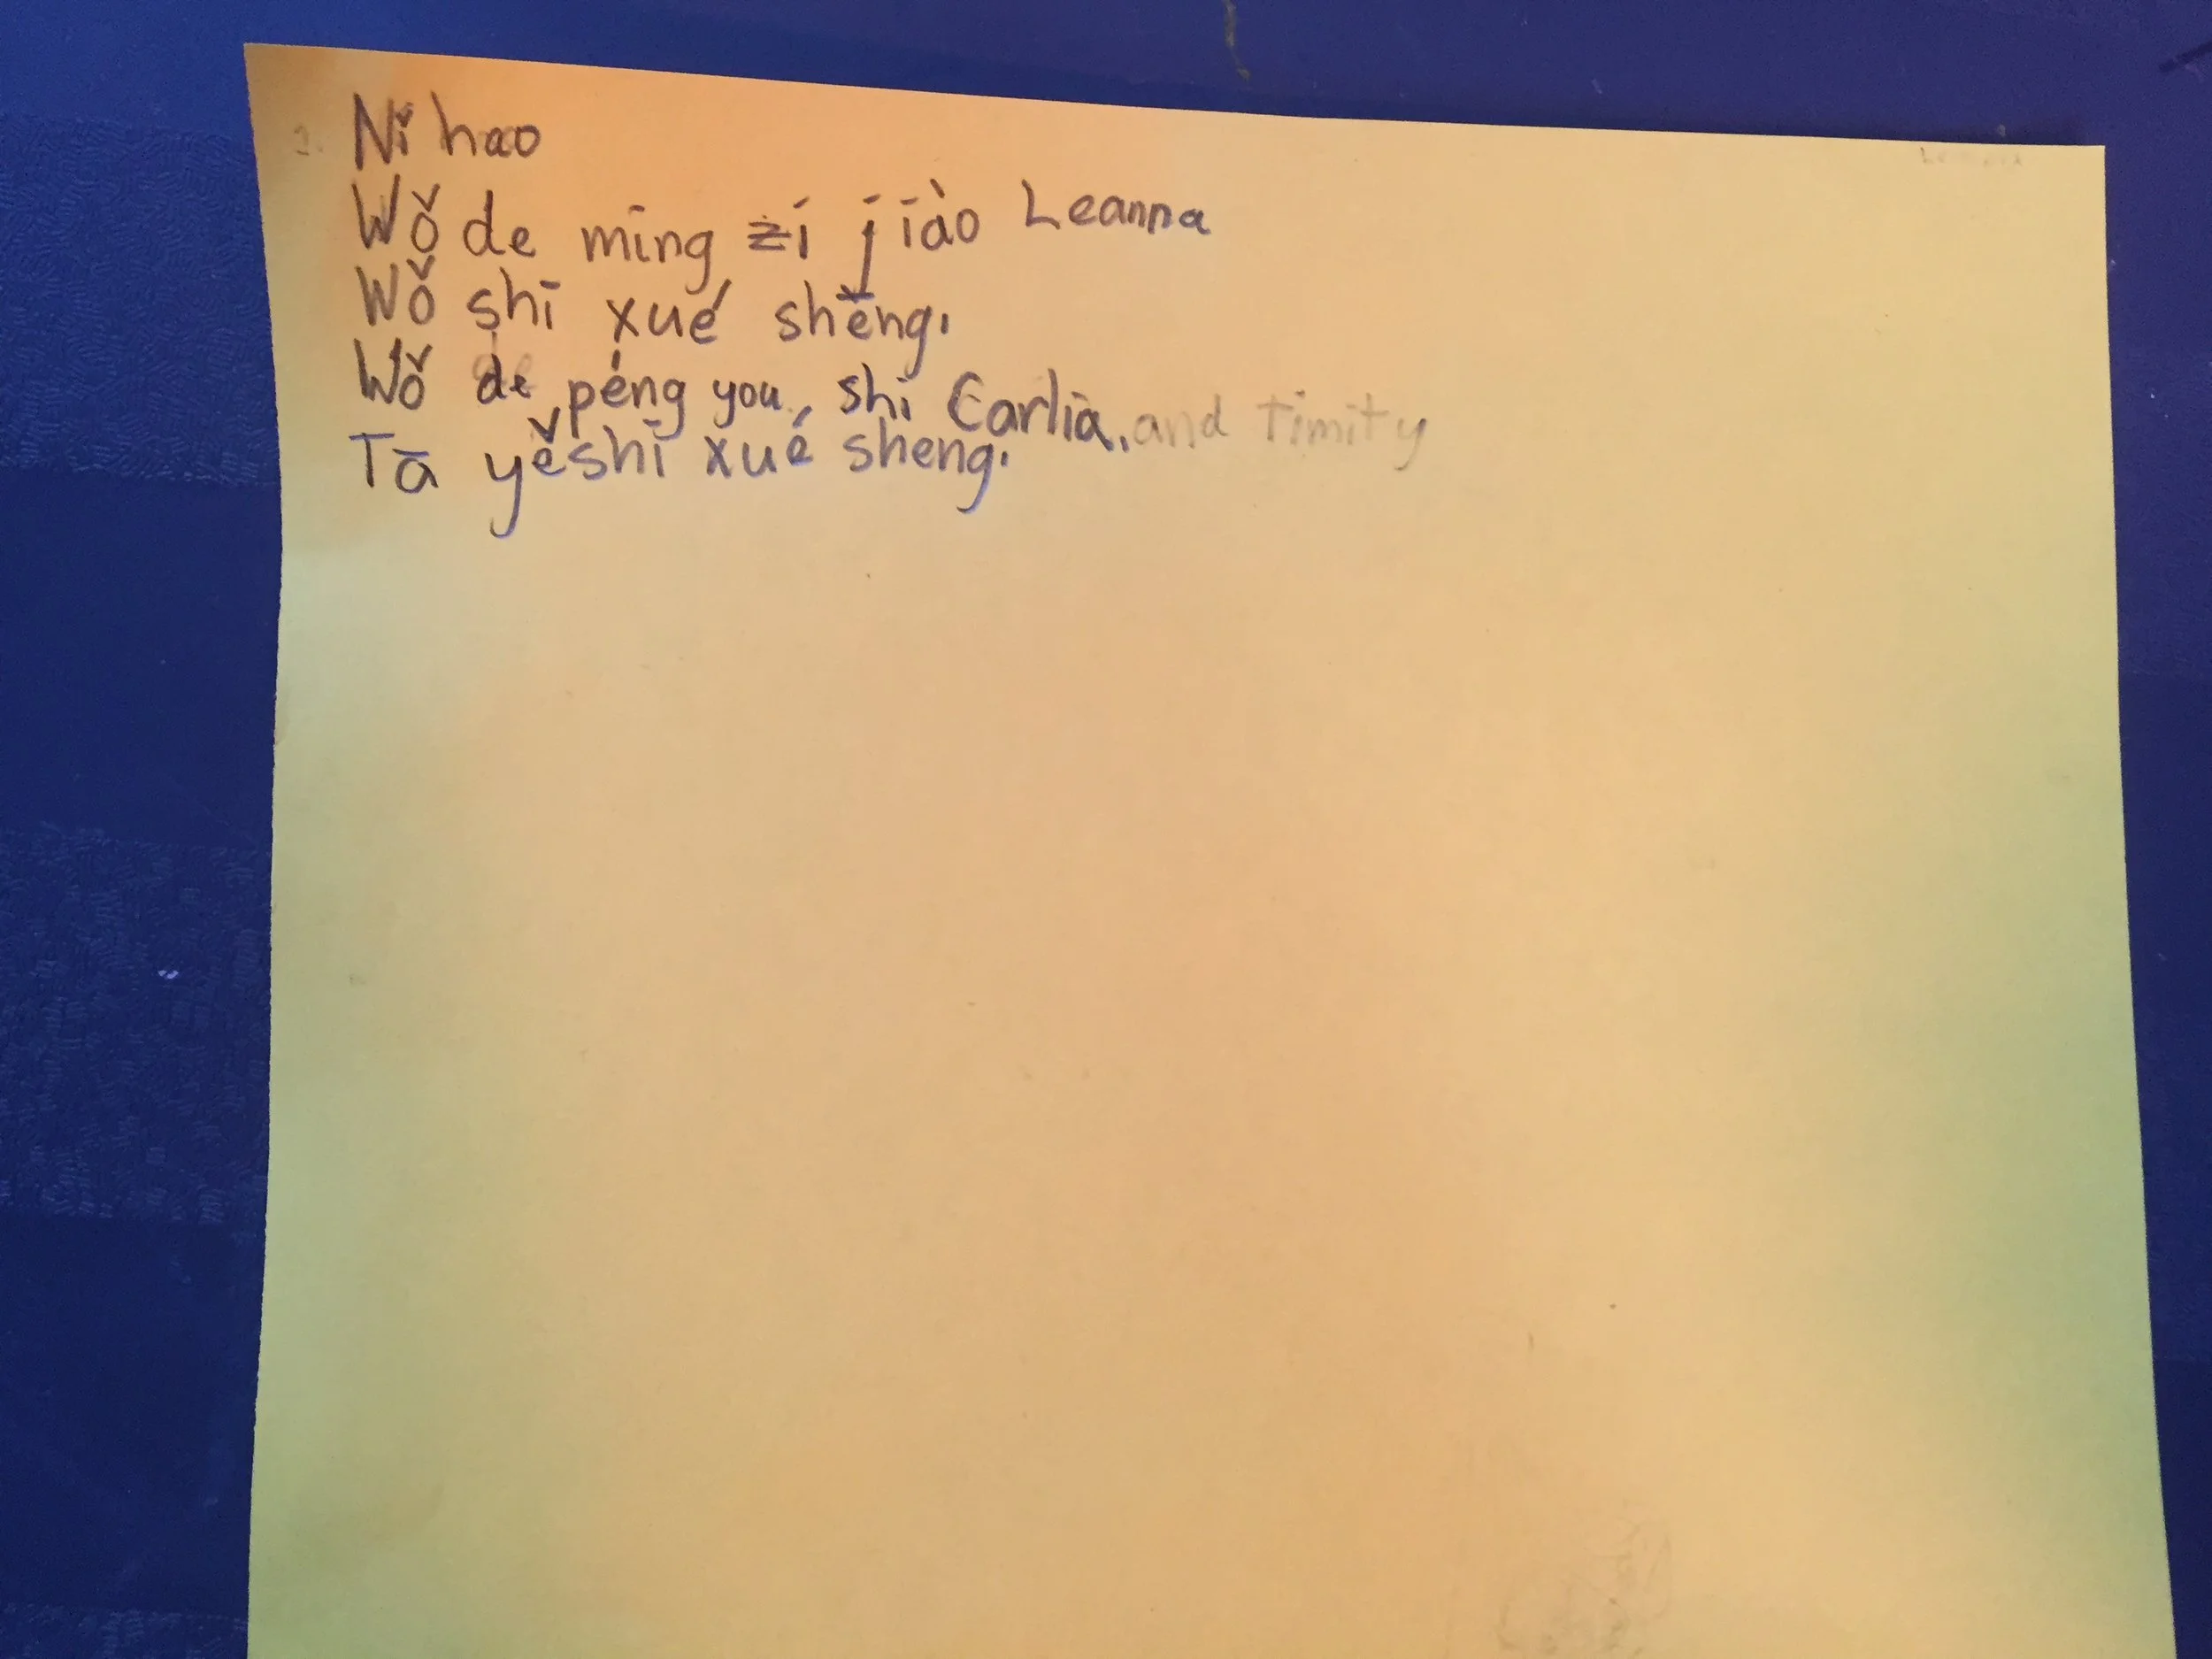 Nǐ hao
Wǒ de mīng zí jīào Leanna
Wǒ shī xué shēng.
Wǒ de péng you, shì Carlia. and Timity
Tā yě shī xué sheng.